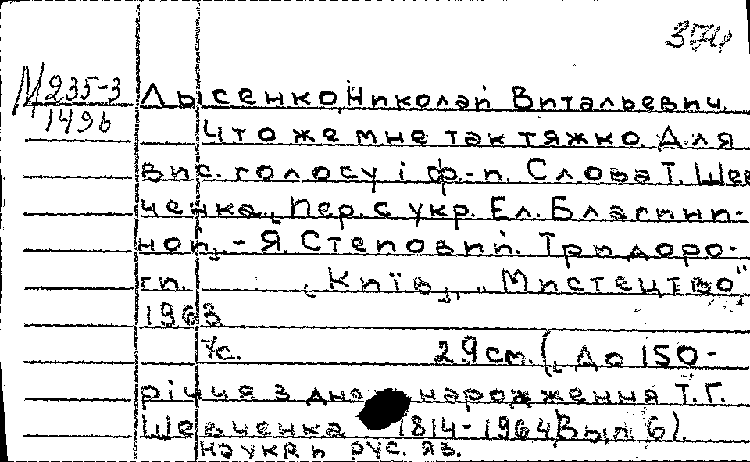 374
М 235-3
1496
Лысенко, Николай Витальевич.
Что же мне так тяжко. Для
вис. голосу і ф.-п. Слова Т. Шев
ченка, Пер. с укр. Ел. Благини-
ной, - Я. Степовий. Три доро-
ги. „Київ", „Мистецтво"
1963
7с. 29см. (, До 150-
річчя з дня народження Т.Г.
Шевченка 1814-1964 Вып. 6).
На укр. и рус. яз.